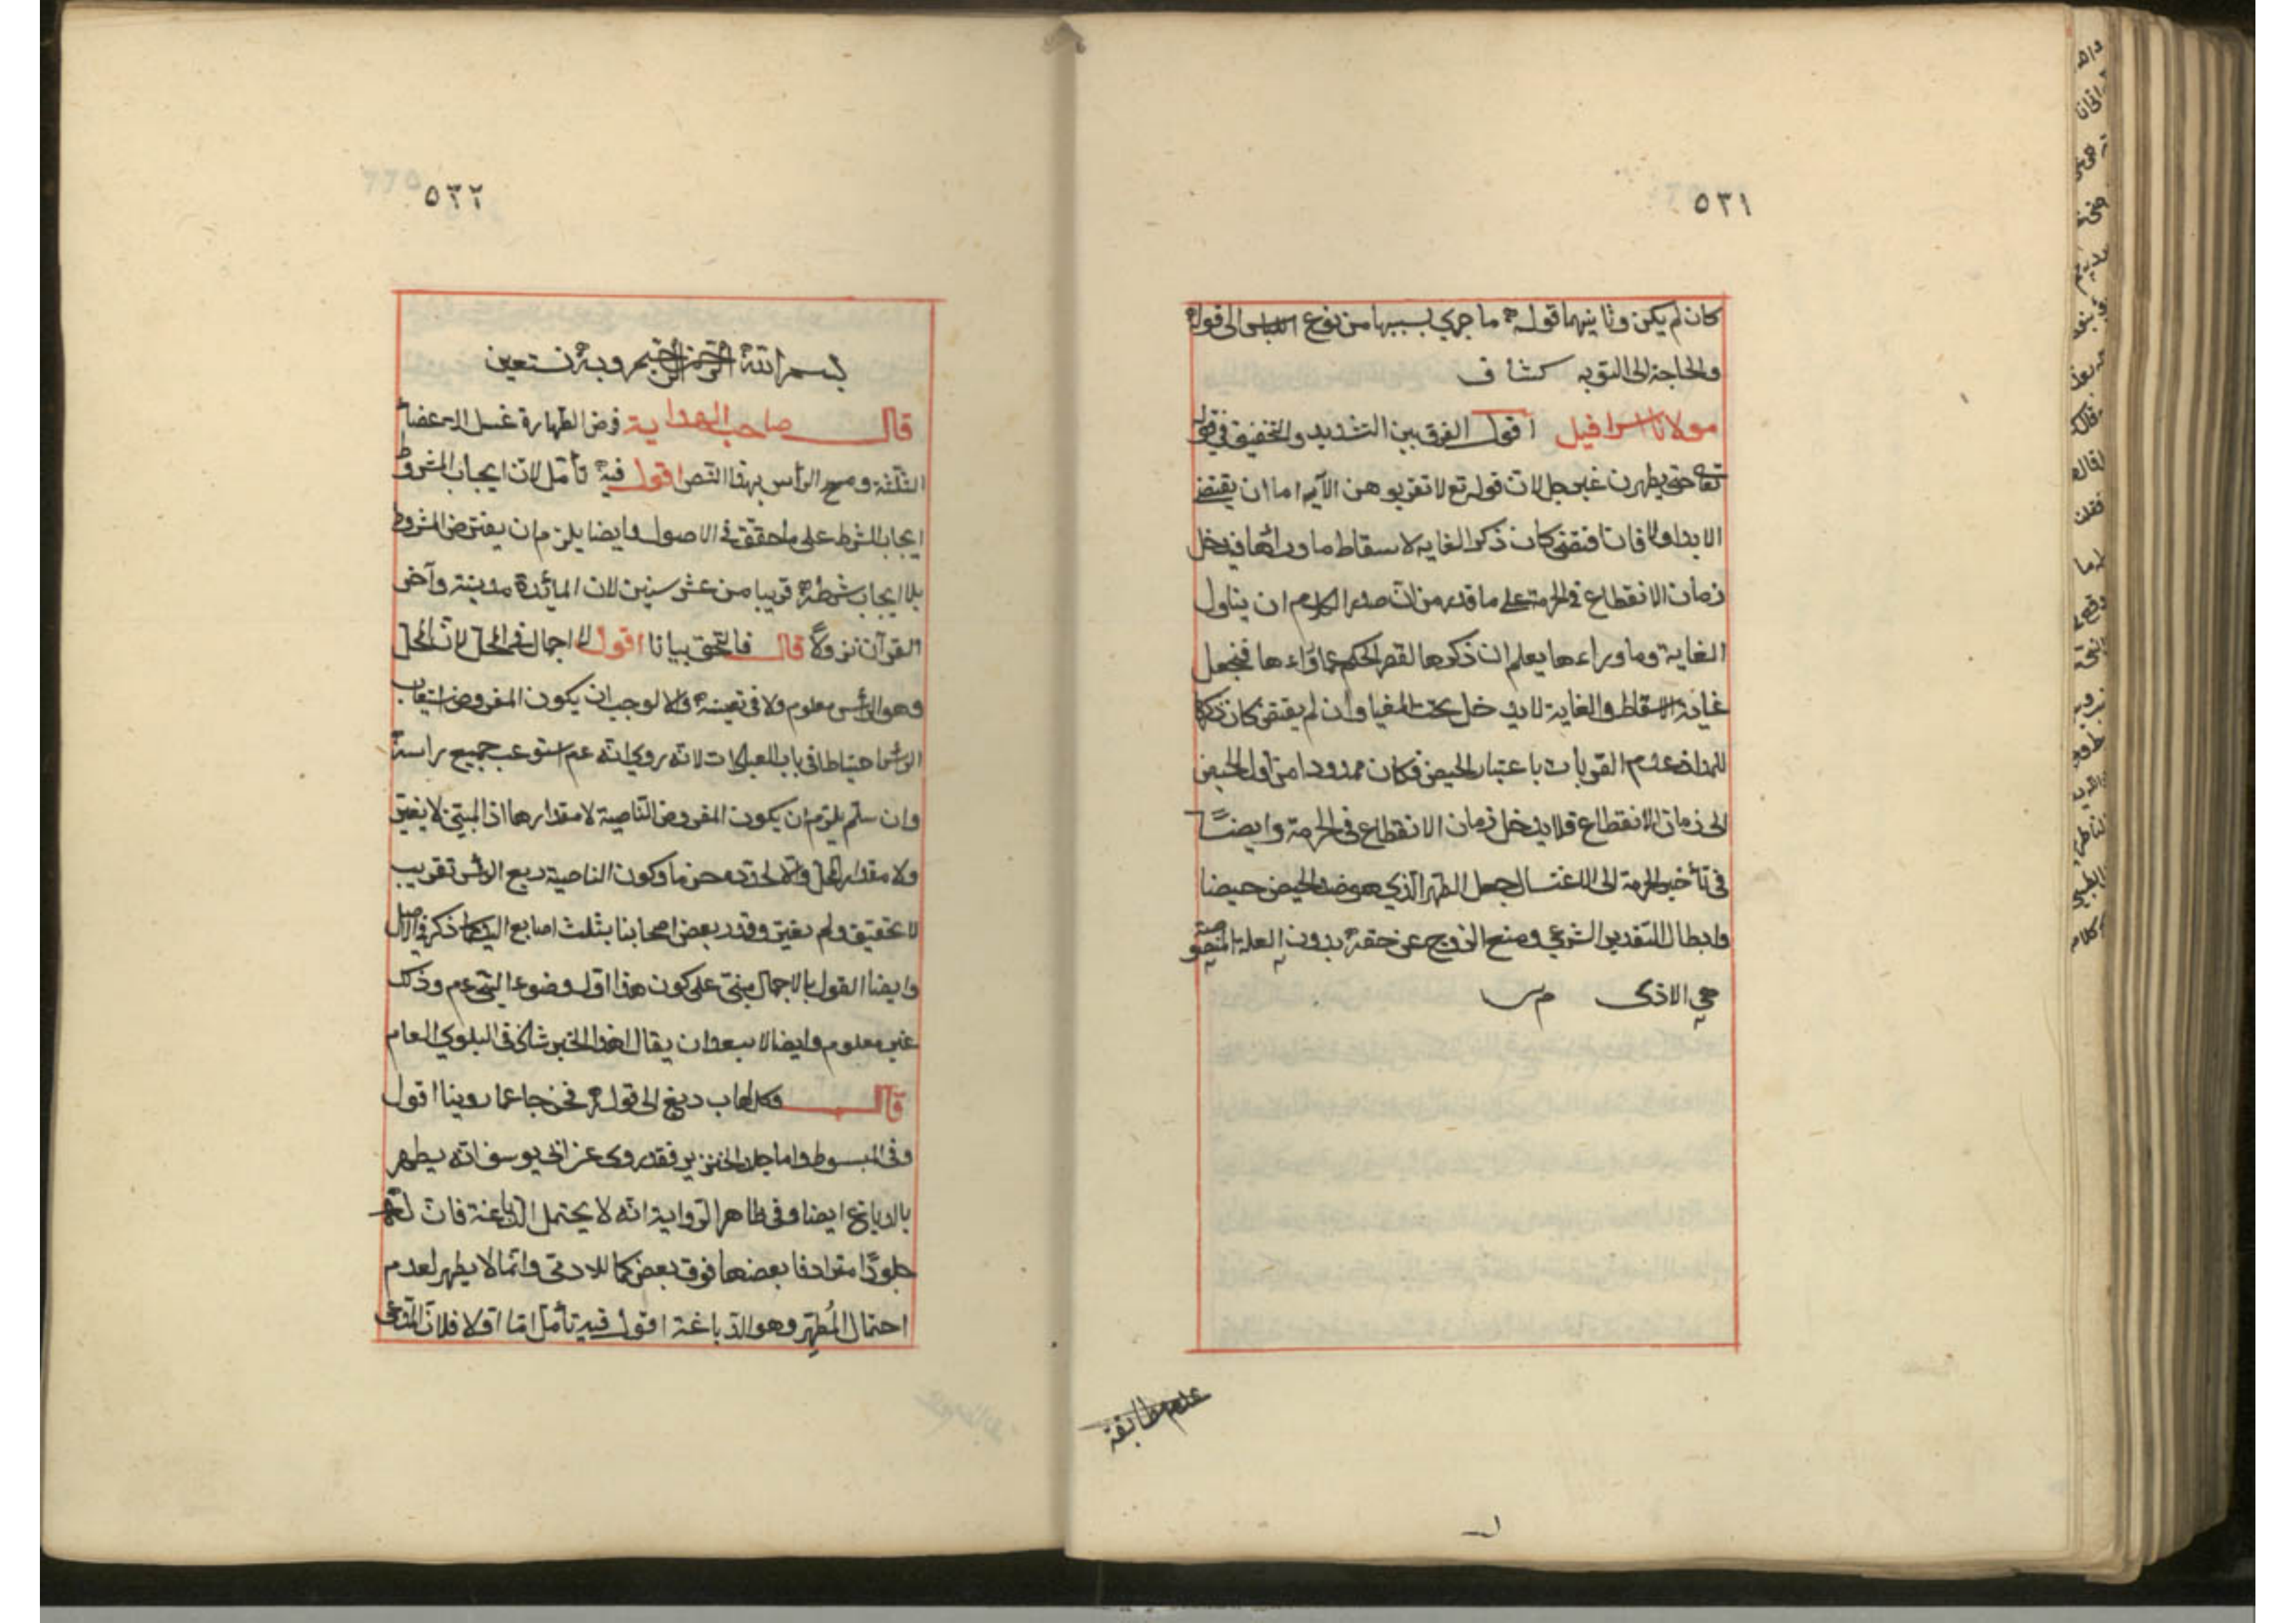 ٥٣١
كان لم يكن وثانيهما قوله ما جرى بسببها من نوع الى قوله
والحاجة الى التوبه كشاف
مولانا اسرافيل اقول الفرق بين التشديد والتخفيف في قوله
تعا حتى يطهرن غير جل لان قوله تع لا تقربوهن الآيه اما ان يقتضى
الابد اولا فان اقتضى كان ذكر الغايه لاسقاط ماورائها فيدخل
زمان الانقطاع في الحرمة على ما قدر من ان صدر الكلام ان يناول
الغاية وما وراءها يعلم ان ذكرها لقصر الحكم عماوراءها فيجعل
غاية الاسقاط والغاية لا يدخل تحت المغيا وان لم يقتض كان ذكرها
لامتداد عدم القربان باعتبار الحيض فكان ممدودا من اول الحيض
الى زمان الانقطاع فلا يدخل زمان الانقطاع في الحرمة وايضًا
في تأخير الحرمة الى الاغتسال جعل الطهر الذي هو ضد الحيض حيضا
وابطال التقدير الشرعي ومنع الزوج عن حقه بدون العلة المنصوصة
هي الاذى
عدم مطابقة
٥٣٢
بسم الله الرحمن الرحيم وبه نستعين
قال صاحب الهداية فرض الطهارة غسل الاعضاء
الثلثة ومسح الرأس بهذا النص اقول فيه تأمل لان ايجاب المشروط
ايجاب الشرط على ما حقق في الاصول وايضا يلزم ان يفترض المشروط
بلا ايجاب شرطه قريبا من عشر سنين لان المائدة مدينة وآخر
القرآن نزولاً قال فالتحق بيانا اقول لا اجمال في المحل لان المحل
وهو الرأس معلوم ولا في تعينه والا لوجب ان يكون المفروض استيعاب
الرأس احتياطا في باب العبادات لانه روي انه عم استوعب جميع راسه
وان سلم يلزم ان يكون المفروض الناصية لا مقدارها اذ المبين لا يغير
ولا مقدار المحل والا لحدده وكون الناصية ربع الرأس تقريب
لا تحقيق ولم يغير وقدر بعض اصحابنا بثلث اصابع اليد كما ذكر في الاصل
وايضا القول بالاجمال مبني على كون هذا اول وضوء النبي عم وذلك
غير معلوم وايضا لا يبعد ان يقال هذا الخبر شاذ في البلوي العام
قال وكل اهاب دبغ الى قوله فخرجا عما روينا اقول
وفي المبسوط واما جلد الخنزير فقد روى عن ابي يوسف انه يطهر
بالدباغ ايضا وفي ظاهر الرواية انه لا يحتمل الدباغة فان له
جلودًا مترادفا بعضها فوق بعض كما للادمي وانما لا يطهر لعدم
احتمال المُطهّر وهو الدباغة اقول فيه تأمل اما اولا فلان المدعى